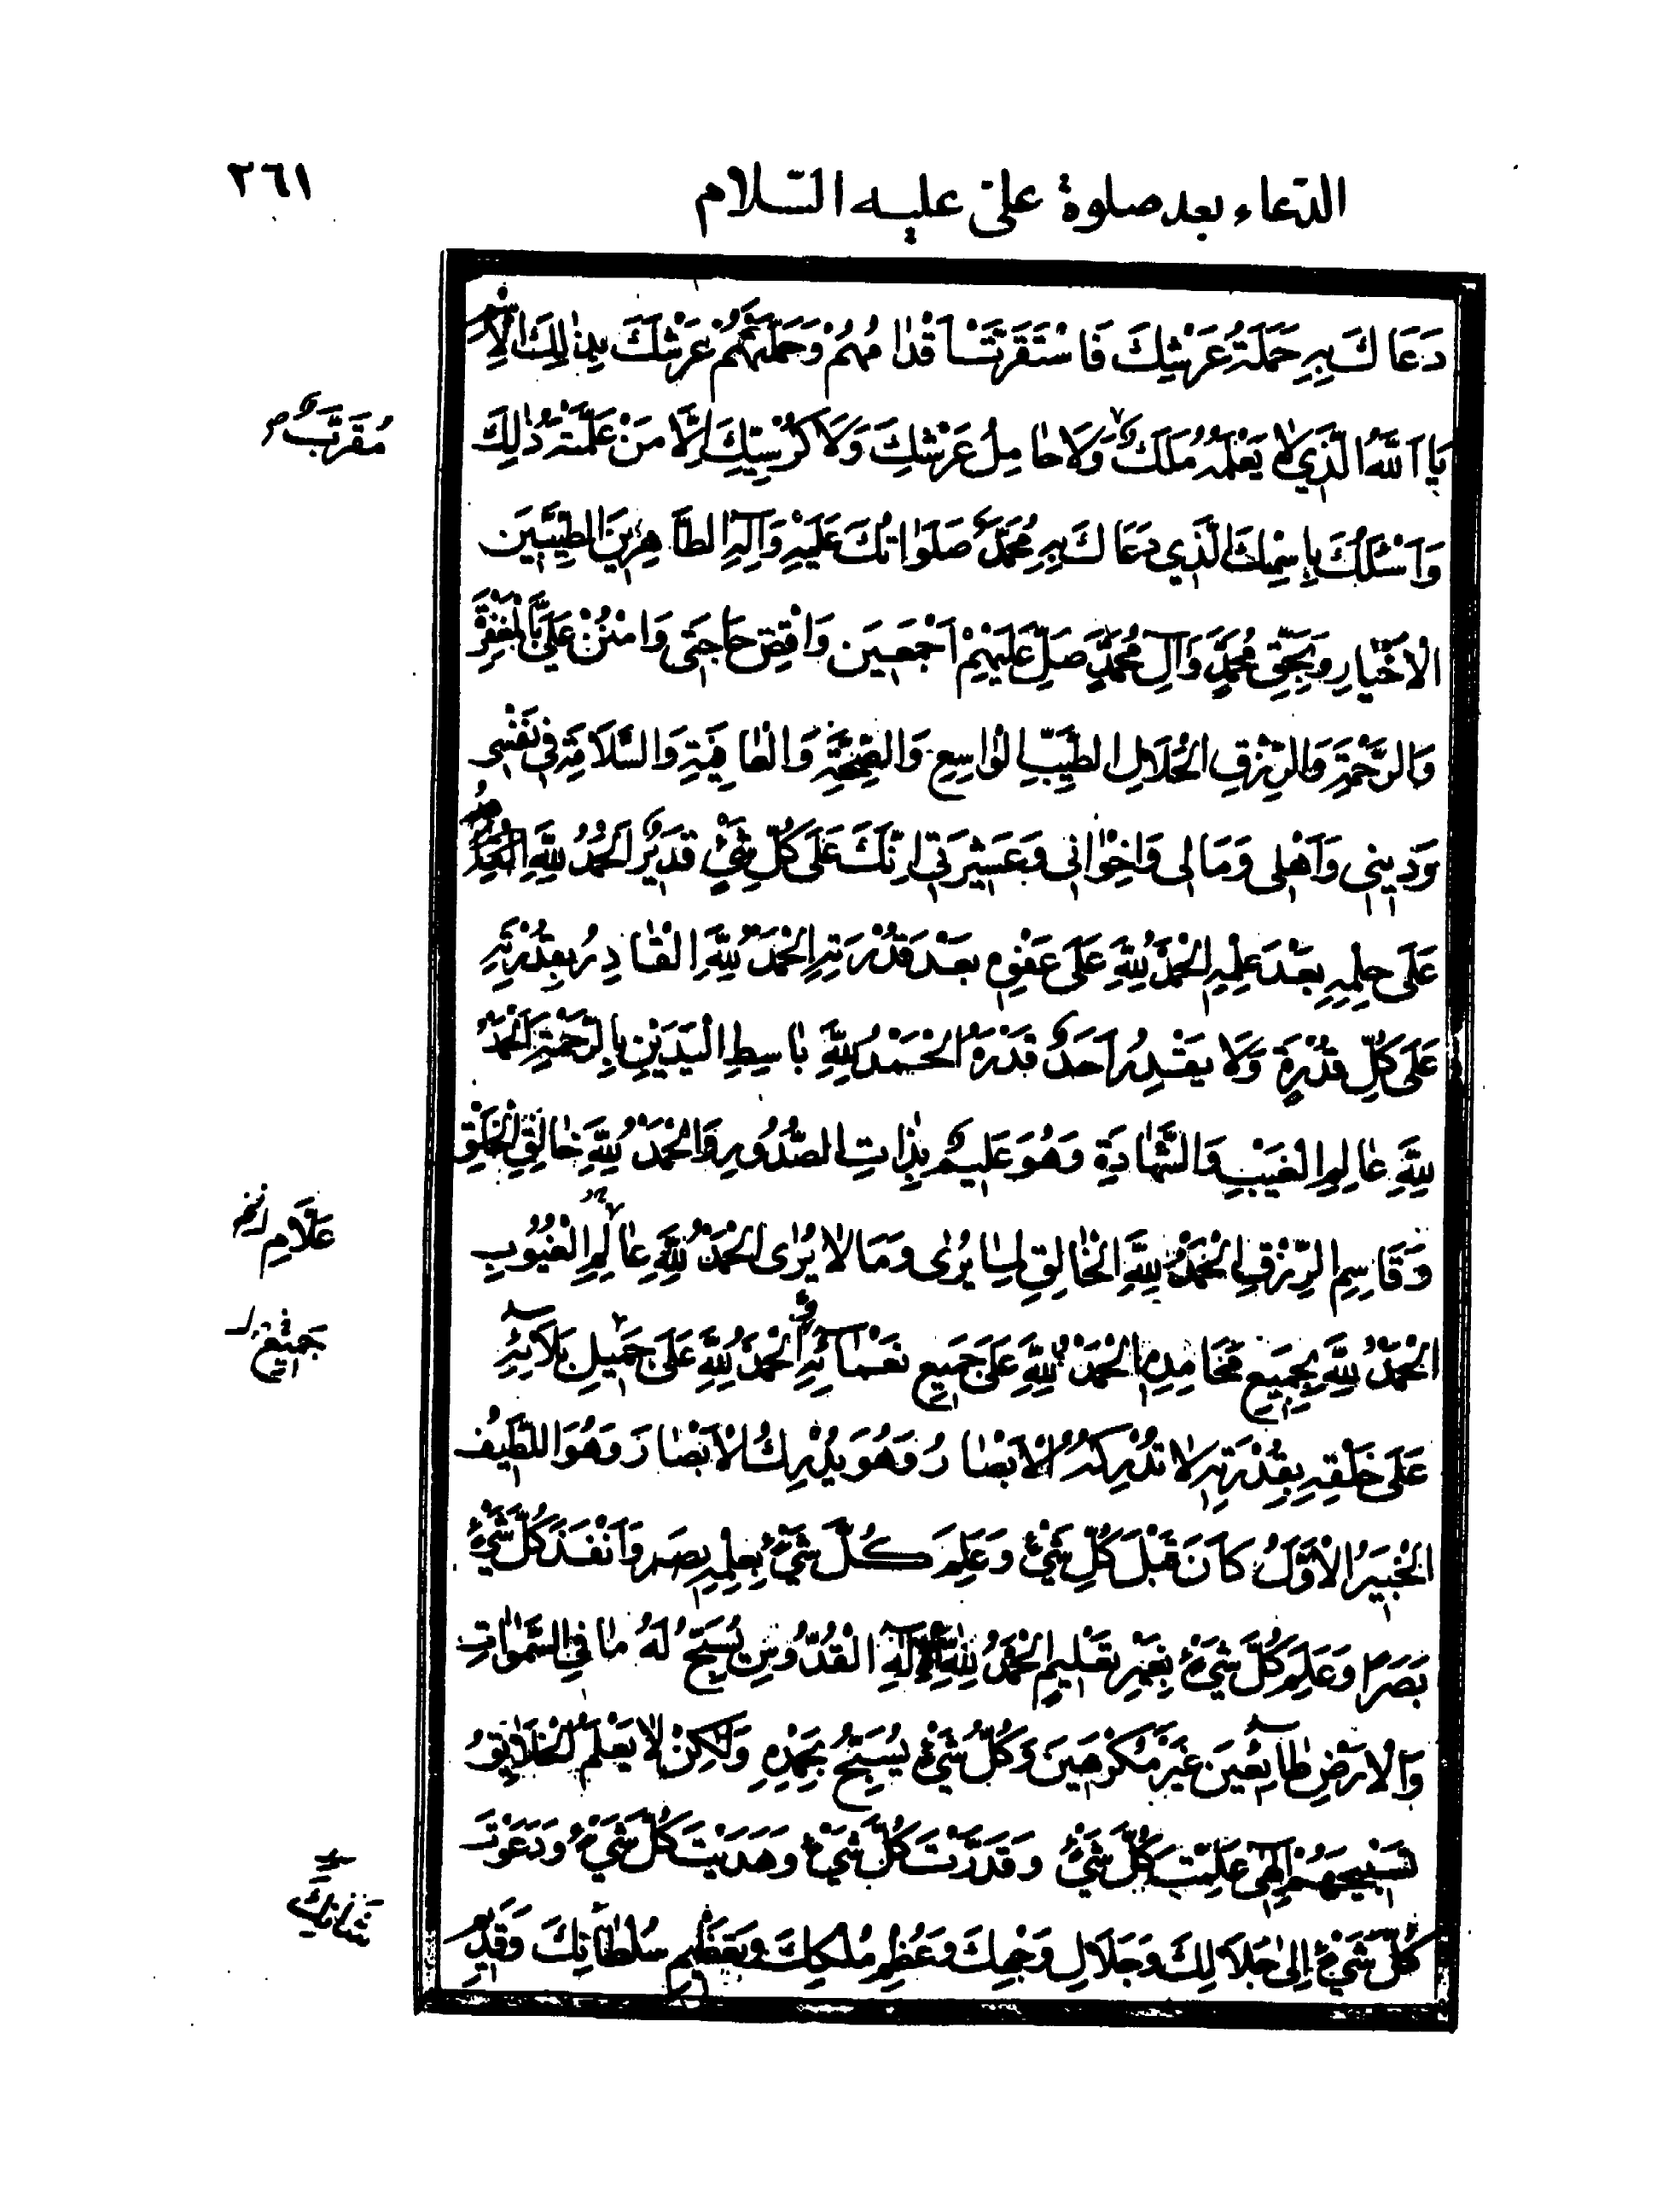 ٢٦١
الدّعاء بعد صلوة علىّ عليه السّلام
دَعَاكَ بِهِ حَمَلَةُ عَرْشِكَ فَاسْتَقَرَّتْ اَقْدٰامُهُمْ وَحَمَّلْتَهُمْ عَرْشَكَ بِذٰلِكَ الْاِسْمِ
يَا اَللّٰهُ الَّذِي لاٰ يَعْلَمُهُ مَلَكٌ وَلَا حٰامِلُ عَرْشِكَ وَلَا كُرْسِيِّكَ اِلَّا مَنْ عَلَّمْتَهُ ذٰلِكَ
مُقَرَّبٌ
وَاَسْئَلُكَ بِاسْمِكَ الَّذِي دَعَاكَ بِهِ مُحَمَّدٌ صَلَوٰاتُكَ عَلَيْهِ وَآلِهِ الطَّاهِرِينَ الطَّيِّبِينَ
الْاَخْيٰارِ وَبِحَقِّ مُحَمَّدٍ وَآلِ مُحَمَّدٍ صَلِّ عَلَيْهِمْ اَجْمَعِينَ وَاقْضِ حَاجَتِى وَامْنُنْ عَلَيَّ بِالْمَغْفِرَةِ
وَالرَّحْمَةِ وَالرِّزْقِ الْحَلَالِ الطَّيِّبِ الْوٰاسِعِ وَالصِّحَّةِ وَالْعٰافِيَةِ وَالسَّلَامَةِ فِي نَفْسِى
وَدِينِي وَاَهْلِى وَمَالِى وَاِخْوٰانِي وَعَشِيرَتِي اِنَّكَ عَلَى كُلِّ شَيْءٍ قَدِيرٌ اَلْحَمْدُ لِلّٰهِ
عَلَى حِلْمِهِ بَعْدَ عِلْمِهِ الْحَمْدُ لِلّٰهِ عَلَى عَفْوِهِ بَعْدَ قُدْرَتِهِ الْحَمْدُ لِلّٰهِ الْقٰادِرُ بِقُدْرَتِهِ
عَلَى كُلِّ قُدْرَةٍ وَلَا يَقْدِرُ اَحَدٌ قَدْرَهُ الْحَمْدُ لِلّٰهِ بَاسِطِ الْيَدَيْنِ بِالرَّحْمَةِ الْحَمْدُ
لِلّٰهِ عٰالِمِ الْغَيْبِ وَالشَّهٰادَةِ وَهُوَ عَلِيمٌ بِذٰاتِ الصُّدُورِ وَالْحَمْدُ لِلّٰهِ خٰالِقِ الْخَلْقِ
وَقَاسِمِ الرِّزْقِ الْحَمْدُ لِلّٰهِ الْخٰالِقِ لِمٰا يُرٰى وَمَا لاٰ يُرٰى الْحَمْدُ لِلّٰهِ عٰالِمِ الْغُيُوبِ
عَلَّامِ
الْحَمْدُ لِلّٰهِ بِجَمِيعِ مَحَامِدِهِ الْحَمْدُ لِلّٰهِ عَلَى جَمِيعِ نَعْمَآئِهِ الْحَمْدُ لِلّٰهِ عَلَى جَمِيلِ بَلَآئِهِ
جَمِيعِ
عَلَى خَلْقِهِ بِقُدْرَتِهِ لاٰ تُدْرِكُهُ الْاَبْصٰارُ وَهُوَ يُدْرِكُ الْاَبْصٰارَ وَهُوَ اللَّطِيفُ
الْخَبِيرُ الْاَوَّلُ كَانَ قَبْلَ كُلِّ شَيْءٍ وَعَلِمَ كُلَّ شَيْءٍ بِعِلْمِهِ بَصَر وَاَنْفَذَ كُلَّ شَيْءٍ
بَصَرًا وَعَلِمَ كُلَّ شَيْءٍ بِغَيْرِ تَعْلِيمٍ الْحَمْدُ لِلّٰهِ الْاِلَهِ الْقُدُّوسِ يُسَبِّحُ لَهُ مٰا فِي السَّمٰوٰاتِ
وَالْاَرْضِ طٰآئِعِينَ غَيْرَ مُكْرَهِينَ وَكُلُّ شَيْءٍ يُسَبِّحُ بِحَمْدِهِ وَلٰكِنْ لاٰ يَعْلَمُ الْخَلَايِقُ
تَسْبِيحَهُمْ اِلٰهِى عَلِمْتَ كُلَّ شَيْءٍ وَقَدَّرْتَ كُلَّ شَيْءٍ وَهَدَيْتَ كُلَّ شَيْءٍ وَدَعَوْتَ
كُلَّ شَيْءٍ اِلىٰ جَلَالِكَ وَجَلَالِ وَجْهِكَ وَعُظْمِ مُلْكِكَ وَتَعْظِيمِ سُلْطٰانِكَ وَقَدِيمِ
شَانِكَ